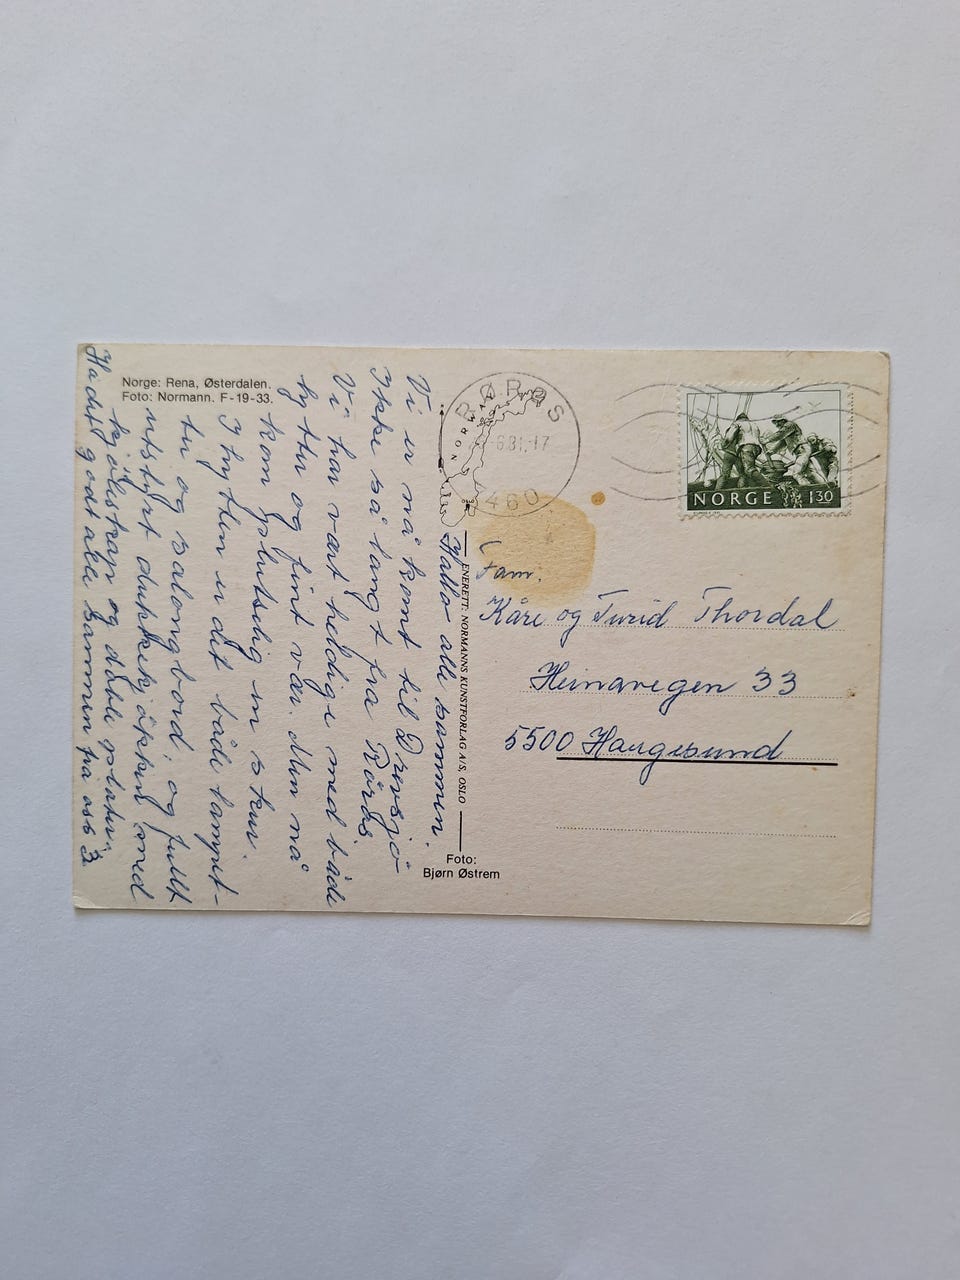 Norge: Rena, Østerdalen.
Foto: Normann. F-19-33.
Hallo alle sammen.
Vi er nå komt til Drevsjø
Ikke så langt fra Röros
Vi har vært heldige med både
hytter og fint vær. Men nå
kom plutselig en skur.
I hytten er det både tomert-
tv og salongbord, og fullt
utstyrt dukkekjökken med
kjöleskap og doble plater.
Ha det godt alle sammen fra oss 3
ENERETT: NORMANNS KUNSTFORLAG A/S, OSLO
Foto:
Bjørn Østrem
RØROS
NORWAY
6.81.-17
7460
NORGE 130
Fam.
Kåre og Turid Thordal
Heinavegen 33
5500 Haugesund